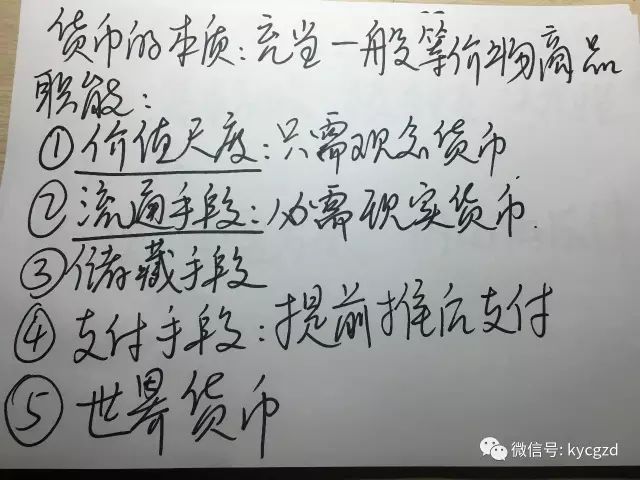 货币的本质:充当一般等价物商品
职能:
①价值尺度:只需观念货币
②流通手段:必需现实货币.
③储藏手段
④支付手段:提前推后支付
⑤世界货币
微信号: kycgzd